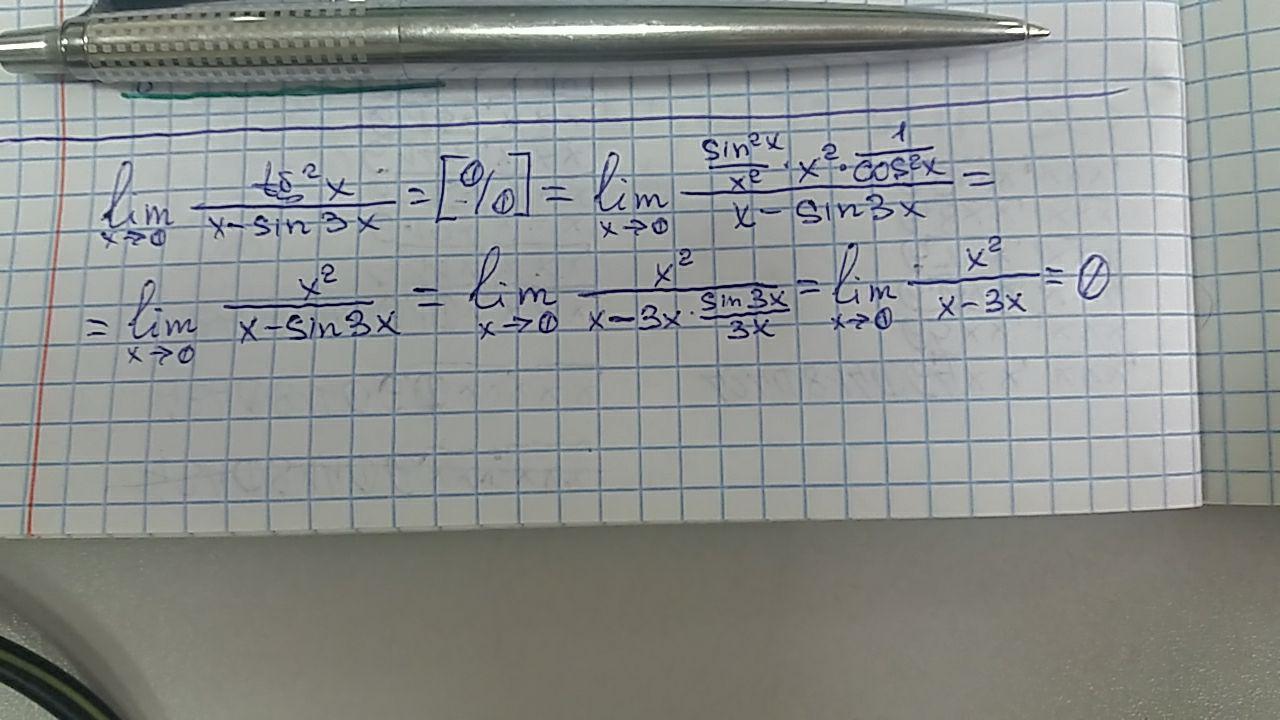 lim x→0 tg²x / (x - sin 3x) = [0/0] = lim x→0 (sin²x / x² · x² · 1 / cos²x) / (x - sin 3x) =
= lim x→0 x² / (x - sin 3x) = lim x→0 x² / (x - 3x · sin 3x / 3x) = lim x→0 x² / (x - 3x) = 0